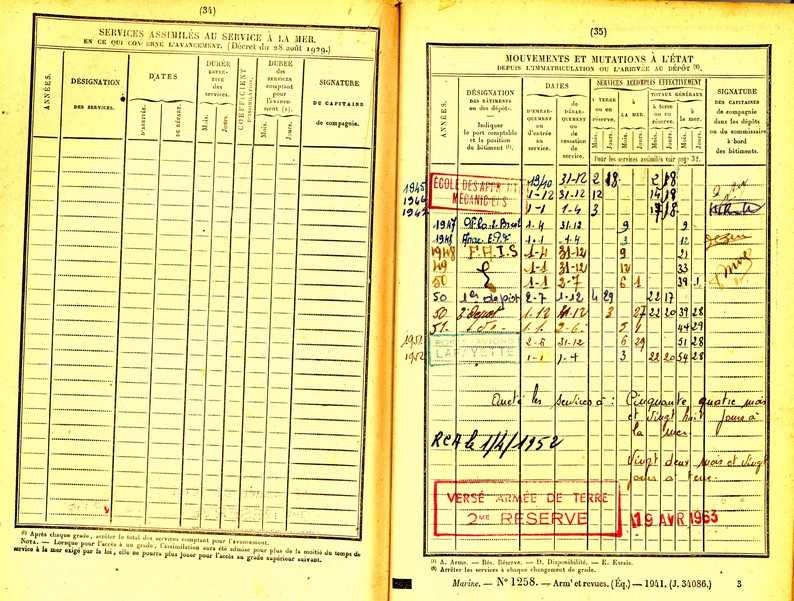 (34)
SERVICES ASSIMILÉS AU SERVICE À LA MER,
EN CE QUI CONCERNE L'AVANCEMENT. (Décret du 28 août 1929.)
ANNÉES.
DÉSIGNATION
DES SERVICES.
DATES
D'ARRIVÉE.
DE DÉPART.
DURÉE
EFFEC-
TIVE
des
services.
Mois.
Jours.
COEFFICIENT
D'ASSIMILATION.
DURÉE
des
services
comptant
pour
l'avance-
ment (1).
Mois.
Jours.
SIGNATURE
DU CAPITAINE
de compagnie.
(1) Après chaque grade, arrêter le total des services comptant pour l'avancement.
NOTA. — Lorsque pour l'accès à un grade, l'assimilation aura été admise pour plus de la moitié du temps de
service à la mer exigé par la loi, elle ne pourra plus jouer pour l'accès au grade supérieur suivant.
(35)
MOUVEMENTS ET MUTATIONS À L'ÉTAT
DEPUIS L'IMMATRICULATION OU L'ARRIVÉE AU DÉPÔT (2).
ANNÉES.
DÉSIGNATION
DES BÂTIMENTS
ou des dépôts.
Indiquer
le port comptable
et la position
du bâtiment (1).
DATES
D'EMBAR-
QUEMENT
ou
d'entrée
au
service.
de
DÉBAR-
QUEMENT
ou de
cessation
de
service.
SERVICES ACCOMPLIS EFFECTIVEMENT
À TERRE
ou en
réserve.
À
LA MER.
TOTAUX GÉNÉRAUX
à terre
ou en
réserve.
à
la mer.
Mois. Jours. Mois. Jours. Mois. Jours. Mois. Jours.
Pour les services assimilés voir page 32.
SIGNATURE
DES CAPITAINES
de compagnie
dans les dépôts
ou du commissaire
à bord
des bâtiments.
ÉCOLE DES APPR
MÉCANICIENS
1945 13/10 31-12 2 18 2 18
1946 1-12 31-12 12 14 18
1947 1-1 1-4 3 17 18
1947 1-4 31-12 9 9
1948 1-1 1-4 3 12
1948 F.H.I.S 1-4 31-12 9 21
49 1-1 31-12 12 33
50 1-1 2-7 6 1 39 1
50 1er dépôt 2-7 1-12 4 29 22 17
50 2 Dépôt 1-12 31-12 3 27 22 20 39 28
51 1-1 2-6 5 1 44 29
1951 2-6 31-12 6 29 51 28
1952 1-1 1-4 3 22 20 54 28
PORTE-AVIONS
LAFAYETTE
Arrêté les services à : Cinquante quatre mois
et vingt huit jours à
la mer.
Vingt deux mois et vingt
jours à terre.
RCA le 1/4/1952
VERSÉ ARMÉE DE TERRE
2ME RÉSERVE
19 AVR 1963
(1) A. Arme. — Rés. Réserve. — D. Disponibilité. — E. Essais.
(2) Arrêter les services à chaque changement de grade.
Marine. — N° 1258. — Armt et revues. (Éq.) — 1941. (J. 34086.)
3